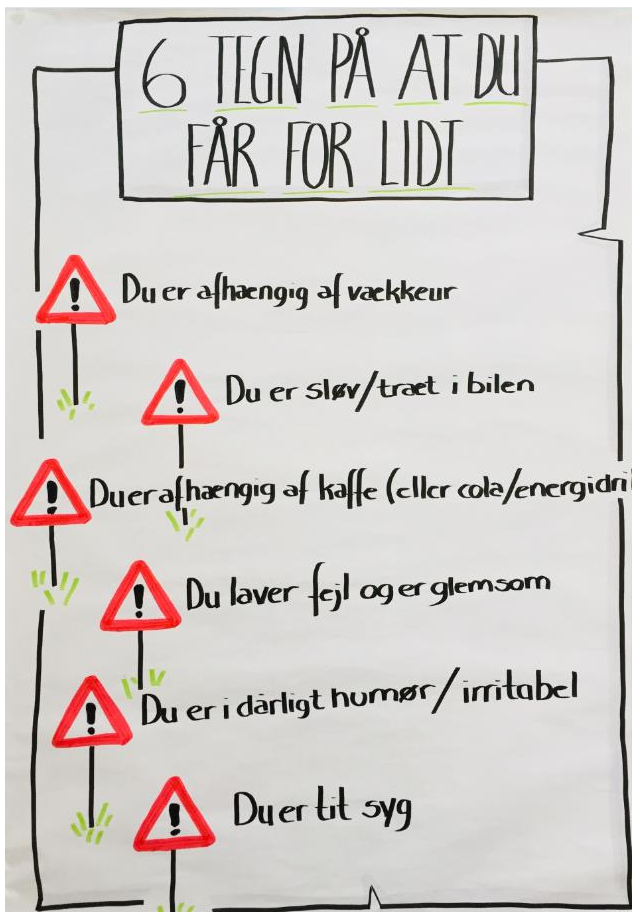 6 TEGN PÅ AT DU
FÅR FOR LIDT
Du er afhængig af vækkeur
Du er sløv/træt i bilen
Du er afhængig af kaffe (eller cola/energidri
Du laver fejl og er glemsom
Du er i dårligt humør/irritabel
Du er tit syg